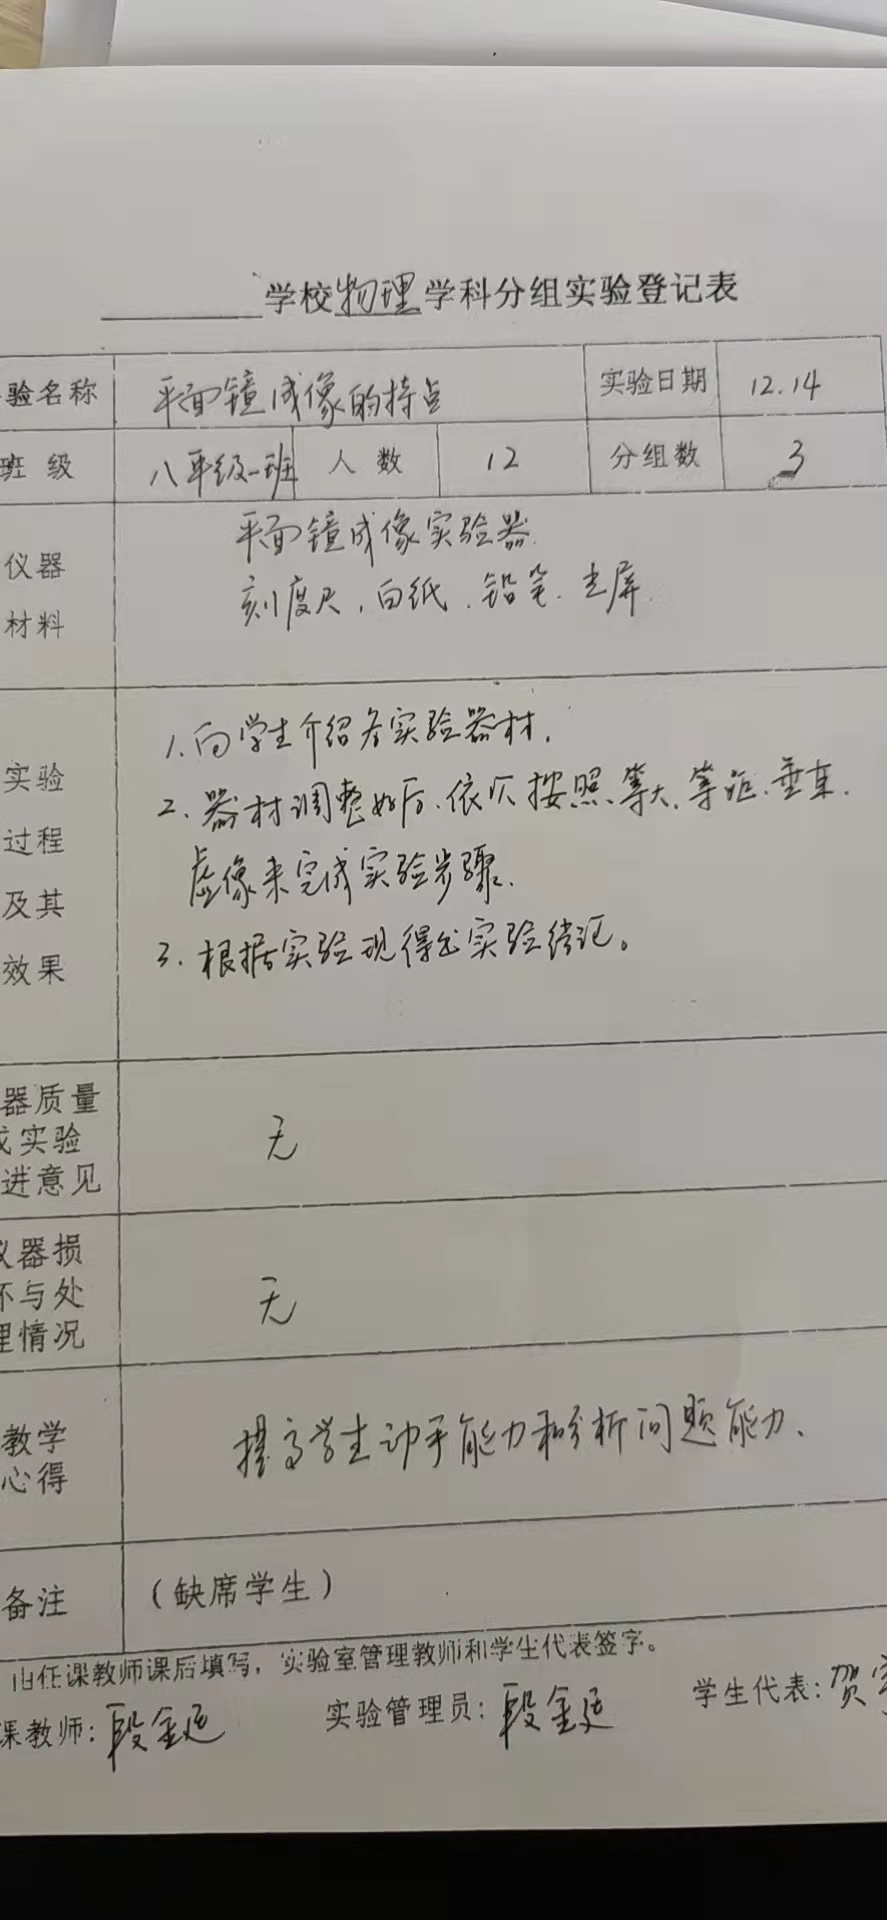 学校物理学科分组实验登记表
验名称 平面镜成像的特点 实验日期 12.14
班级 八年级一班 人数 12 分组数 3
仪器
材料
平面镜成像实验器
刻度尺、白纸、铅笔、光屏
实验
过程
及其
效果
1.向学生介绍各实验器材,
2.器材调整好后、依次按照、等大、等距、垂直、
虚像来完成实验步骤.
3.根据实验现得出实验结论。
器质量
实验
进意见
无
仪器损
坏与处
理情况
无
教学
心得
提高学生动手能力和分析问题能力、
备注 (缺席学生)
由任课教师课后填写,实验室管理教师和学生代表签字。
课教师:段金廷 实验管理员:段金廷 学生代表:贺